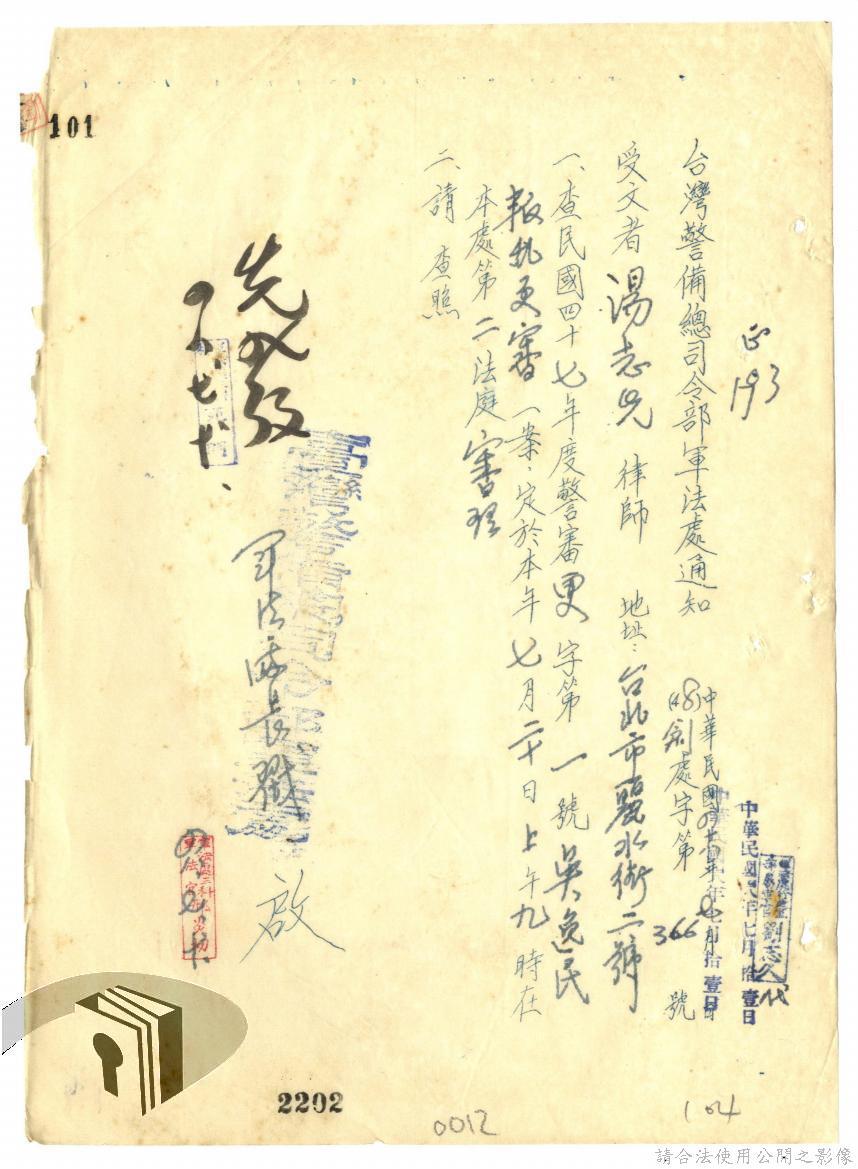 正
193
台灣警備總司令部軍法處通知
中華民國四十八年七月拾壹日
(48)劍處字第366號
中華民國四八年七月拾壹日
劉志久 代
受文者 湯志光 律師 地址：台北市麗水街二號
一、查民國四十七年度警審更字第一號吳逸民
叛亂更審一案，定於本年七月二十日上午九時在
本處第二法庭審理
二、請 查照
軍法處長戳 啟
先發
七、十、
101
2202
0012
104
請合法使用公開之影像